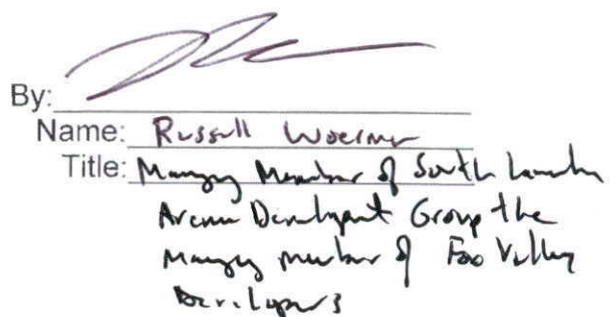 By:
Name: Russell Woerner
Title: Managing Member of South
Avenue Development Group the
Managing member of Fox Valley
Developers